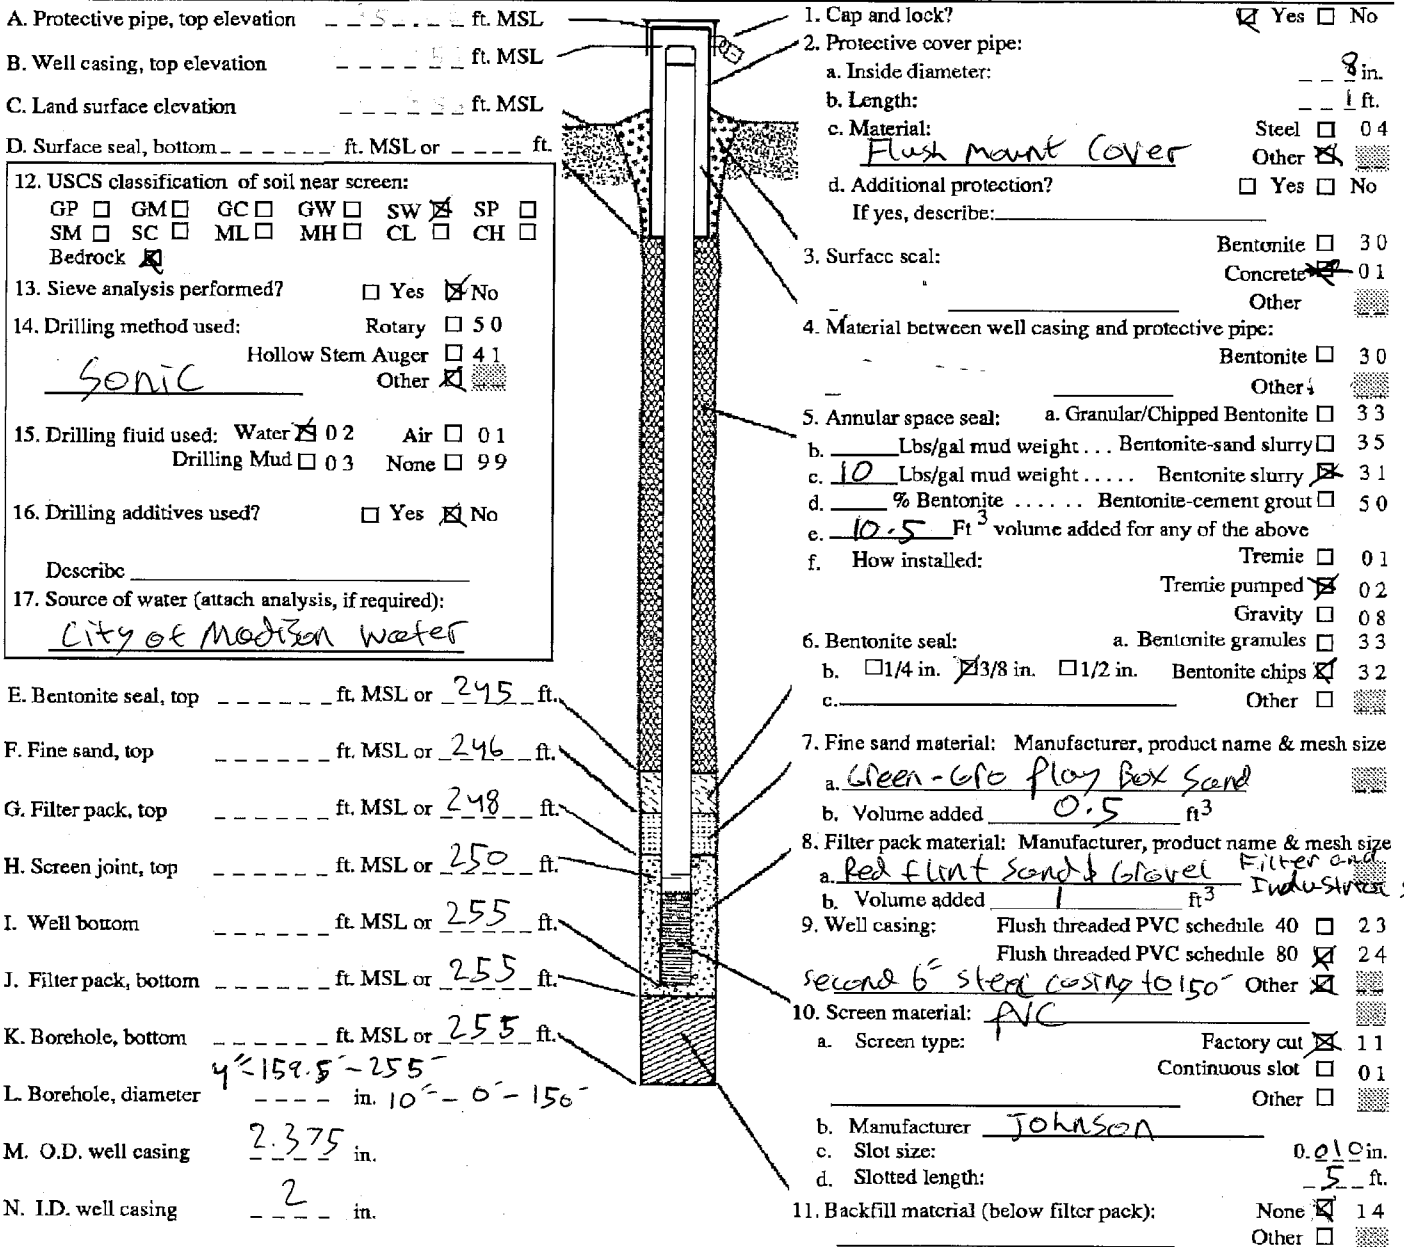 A. Protective pipe, top elevation _ _ _ _ _ _ ft. MSL
B. Well casing, top elevation _ _ _ _ _ _ ft. MSL
C. Land surface elevation _ _ _ _ _ _ ft. MSL
D. Surface seal, bottom _ _ _ _ _ _ ft. MSL or _ _ _ _ ft.
12. USCS classification of soil near screen:
GP ☐ GM ☐ GC ☐ GW ☐ SW ☒ SP ☐
SM ☐ SC ☐ ML ☐ MH ☐ CL ☐ CH ☐
Bedrock ☒
13. Sieve analysis performed? ☐ Yes ☒ No
14. Drilling method used: Rotary ☐ 50
Hollow Stem Auger ☐ 41
Sonic Other ☒
15. Drilling fluid used: Water ☒ 02 Air ☐ 01
Drilling Mud ☐ 03 None ☐ 99
16. Drilling additives used? ☐ Yes ☒ No
Describe
17. Source of water (attach analysis, if required):
City of Madison water
E. Bentonite seal, top _ _ _ _ _ _ ft. MSL or 245 ft.
F. Fine sand, top _ _ _ _ _ _ ft. MSL or 246 ft.
G. Filter pack, top _ _ _ _ _ _ ft. MSL or 248 ft.
H. Screen joint, top _ _ _ _ _ _ ft. MSL or 250 ft.
I. Well bottom _ _ _ _ _ _ ft. MSL or 255 ft.
J. Filter pack, bottom _ _ _ _ _ _ ft. MSL or 255 ft.
K. Borehole, bottom _ _ _ _ _ _ ft. MSL or 255 ft.
4" - 159.5' - 255'
L. Borehole, diameter _ _ _ _ in. 10" - 0' - 150'
M. O.D. well casing 2.375 in.
N. I.D. well casing 2 in.
1. Cap and lock? ☒ Yes ☐ No
2. Protective cover pipe:
a. Inside diameter: 8 in.
b. Length: 1 ft.
c. Material: Steel ☐ 04
Flush mount cover Other ☒
d. Additional protection? ☐ Yes ☐ No
If yes, describe:
3. Surface seal: Bentonite ☐ 30
Concrete ☒ 01
Other
4. Material between well casing and protective pipe:
Bentonite ☐ 30
Other
5. Annular space seal: a. Granular/Chipped Bentonite ☐ 33
b. ____ Lbs/gal mud weight ... Bentonite-sand slurry ☐ 35
c. 10 Lbs/gal mud weight ..... Bentonite slurry ☒ 31
d. ____ % Bentonite ...... Bentonite-cement grout ☐ 50
e. 10.5 Ft³ volume added for any of the above
f. How installed: Tremie ☐ 01
Tremie pumped ☒ 02
Gravity ☐ 08
6. Bentonite seal: a. Bentonite granules ☐ 33
b. ☐ 1/4 in. ☒ 3/8 in. ☐ 1/2 in. Bentonite chips ☒ 32
c. ____ Other ☐
7. Fine sand material: Manufacturer, product name & mesh size
a. Green-Gro Play Box Sand
b. Volume added 0.5 ft³
8. Filter pack material: Manufacturer, product name & mesh size
a. Red Flint Sand & Gravel Filter and
Industrial
b. Volume added 1 ft³
9. Well casing: Flush threaded PVC schedule 40 ☐ 23
Flush threaded PVC schedule 80 ☒ 24
second 6" steel casing to 150' Other ☒
10. Screen material: PVC
a. Screen type: Factory cut ☒ 11
Continuous slot ☐ 01
Other ☐
b. Manufacturer Johnson
c. Slot size: 0.010 in.
d. Slotted length: 5 ft.
11. Backfill material (below filter pack): None ☒ 14
Other ☐